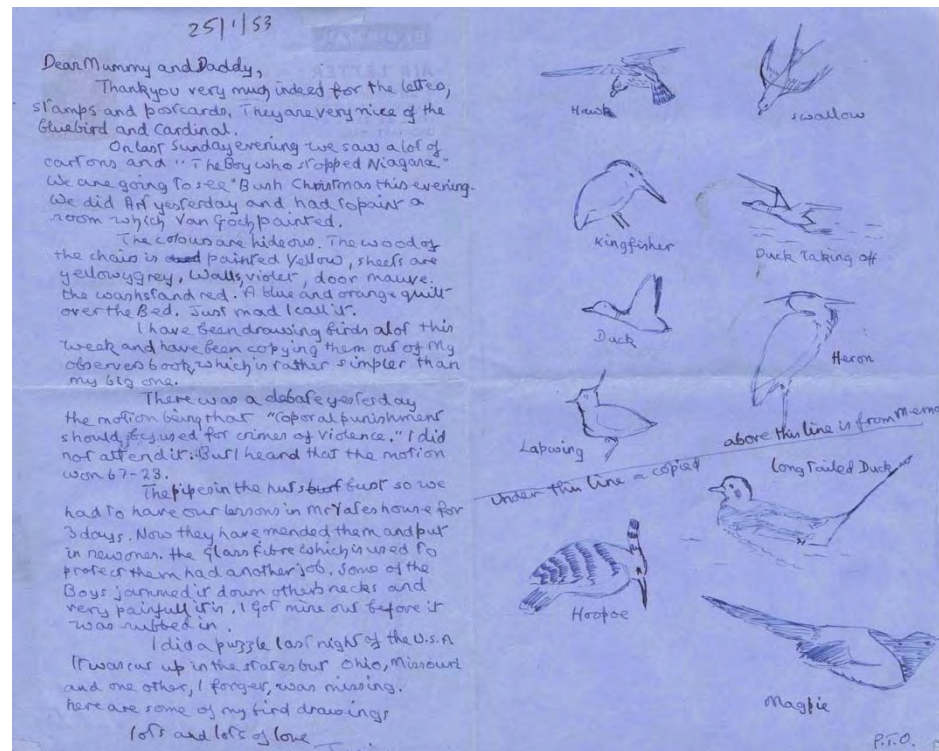 25/1/53
Dear Mummy and Daddy,
Thankyou very much indeed for the letter,
stamps and postcards. They are very nice of the
Bluebird and Cardinal.
On last Sunday evening we saw a lot of
cartons and "The Boy who stopped Niagara."
We are going to see "Bush Christmas this evening.
We did Art yesterday and had to paint a
room which Van Goch painted.
The colours are hideous. The wood of
the chairs is painted Yellow, sheets are
yellowygrey, Walls, violet, door mauve.
the washstand red. A blue and orange quilt
over the Bed. Just mad I call it.
I have been drawing birds alot this
week and have been copying them out of My
observers book, which is rather simpler than
my big one.
There was a debate yesterday
the motion being that "coporal punishment
should be used for crimes of violence." I did
not attend it. But I heard that the motion
won 67-23.
The pipes in the huts bust so we
had to have our lessons in Mr Yates house for
3 days. Now they have mended them and put
in new ones. the glass fibre which is used to
protect them had another job. Some of the
Boys jammed it down others necks and
very painfull it is. I Got mine out before it
was rubbed in.
I did a puzzle last night of the U.S.A
It was cut up in the states but Ohio, Missouri
and one other, I forget, was missing.
here are some of my bird drawings
lots and lots of love
Hawk
swallow
Kingfisher
Duck Taking off
Duck
Heron
Lapwing
above this line is from memo
under this line = copied
Long Tailed Duck
Hoopoe
Magpie
P.T.O.